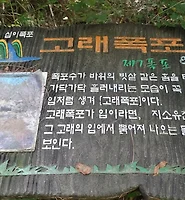 십이폭포
고래폭포
제7폭포
폭포수가 바위의 빗살 같은 홈을 따
가닥가닥 흘러내리는 모습이 꼭
입처럼 생겨 [고래폭포]이다.
고래폭포가 입이라면, 지소유
그 고래의 입에서 뿜어져 나오는
보인다.